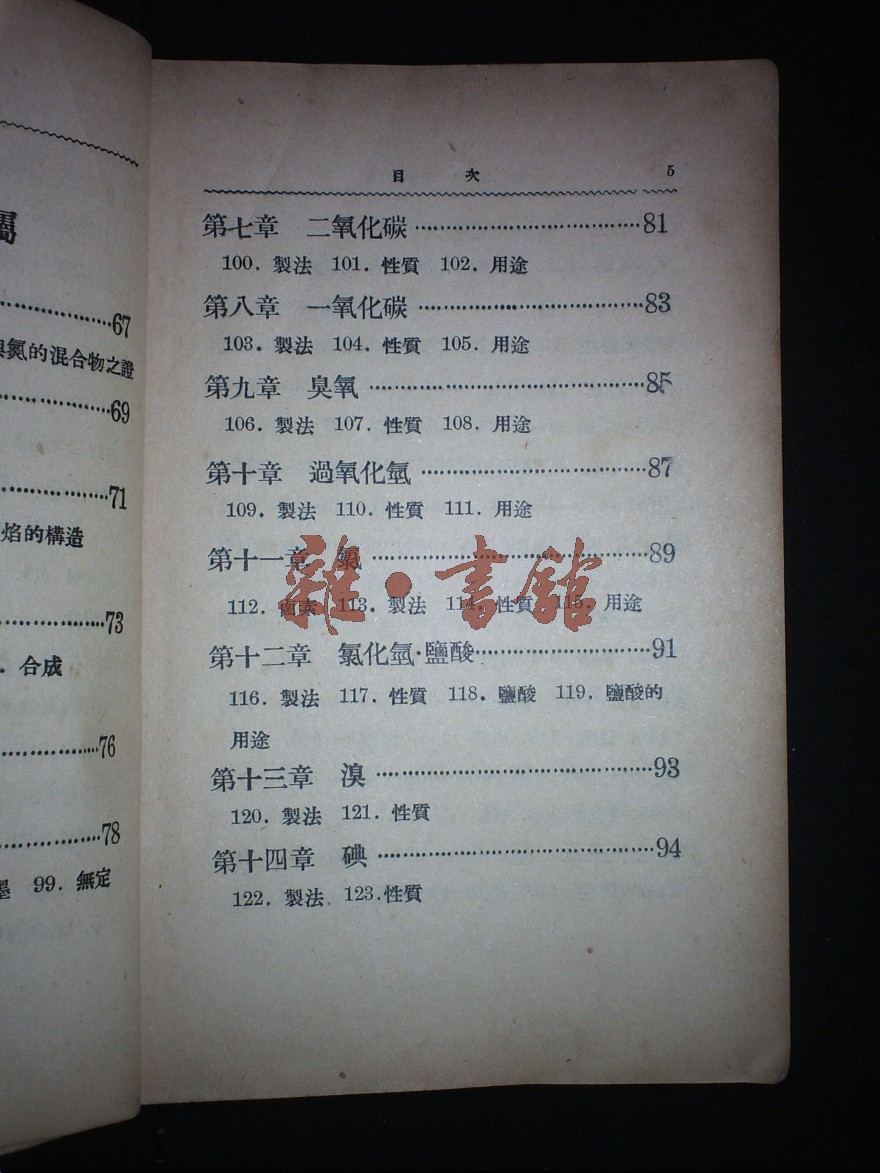 屬
67
與氮的混合物之證
69
71
焰的構造
73
．合成
76
78
墨 99．無定
目 次 5
第七章 二氧化碳 81
100．製法 101．性質 102．用途
第八章 一氧化碳 83
103．製法 104．性質 105．用途
第九章 臭氧 85
106．製法 107．性質 108．用途
第十章 過氧化氫 87
109．製法 110．性質 111．用途
第十一章 氯 89
112．鹵素 113．製法 114．性質 115．用途
第十二章 氯化氫·鹽酸 91
116．製法 117．性質 118．鹽酸 119．鹽酸的
用途
第十三章 溴 93
120．製法 121．性質
第十四章 碘 94
122．製法 123．性質
雜·書館